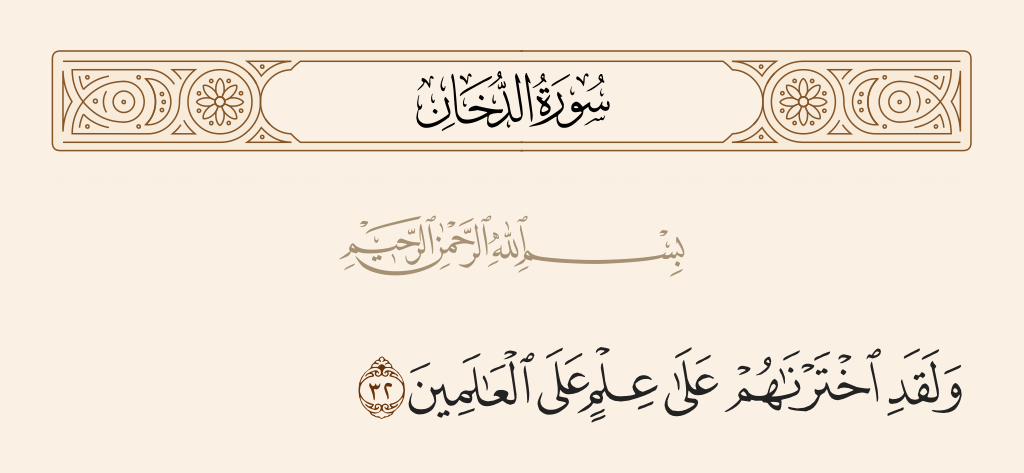 سُورَةُ الدُّخَانِ
بِسْمِ ٱللَّهِ ٱلرَّحْمَٰنِ ٱلرَّحِيمِ
وَلَقَدِ ٱخْتَرْنَٰهُمْ عَلَىٰ عِلْمٍ عَلَى ٱلْعَٰلَمِينَ ٣٢